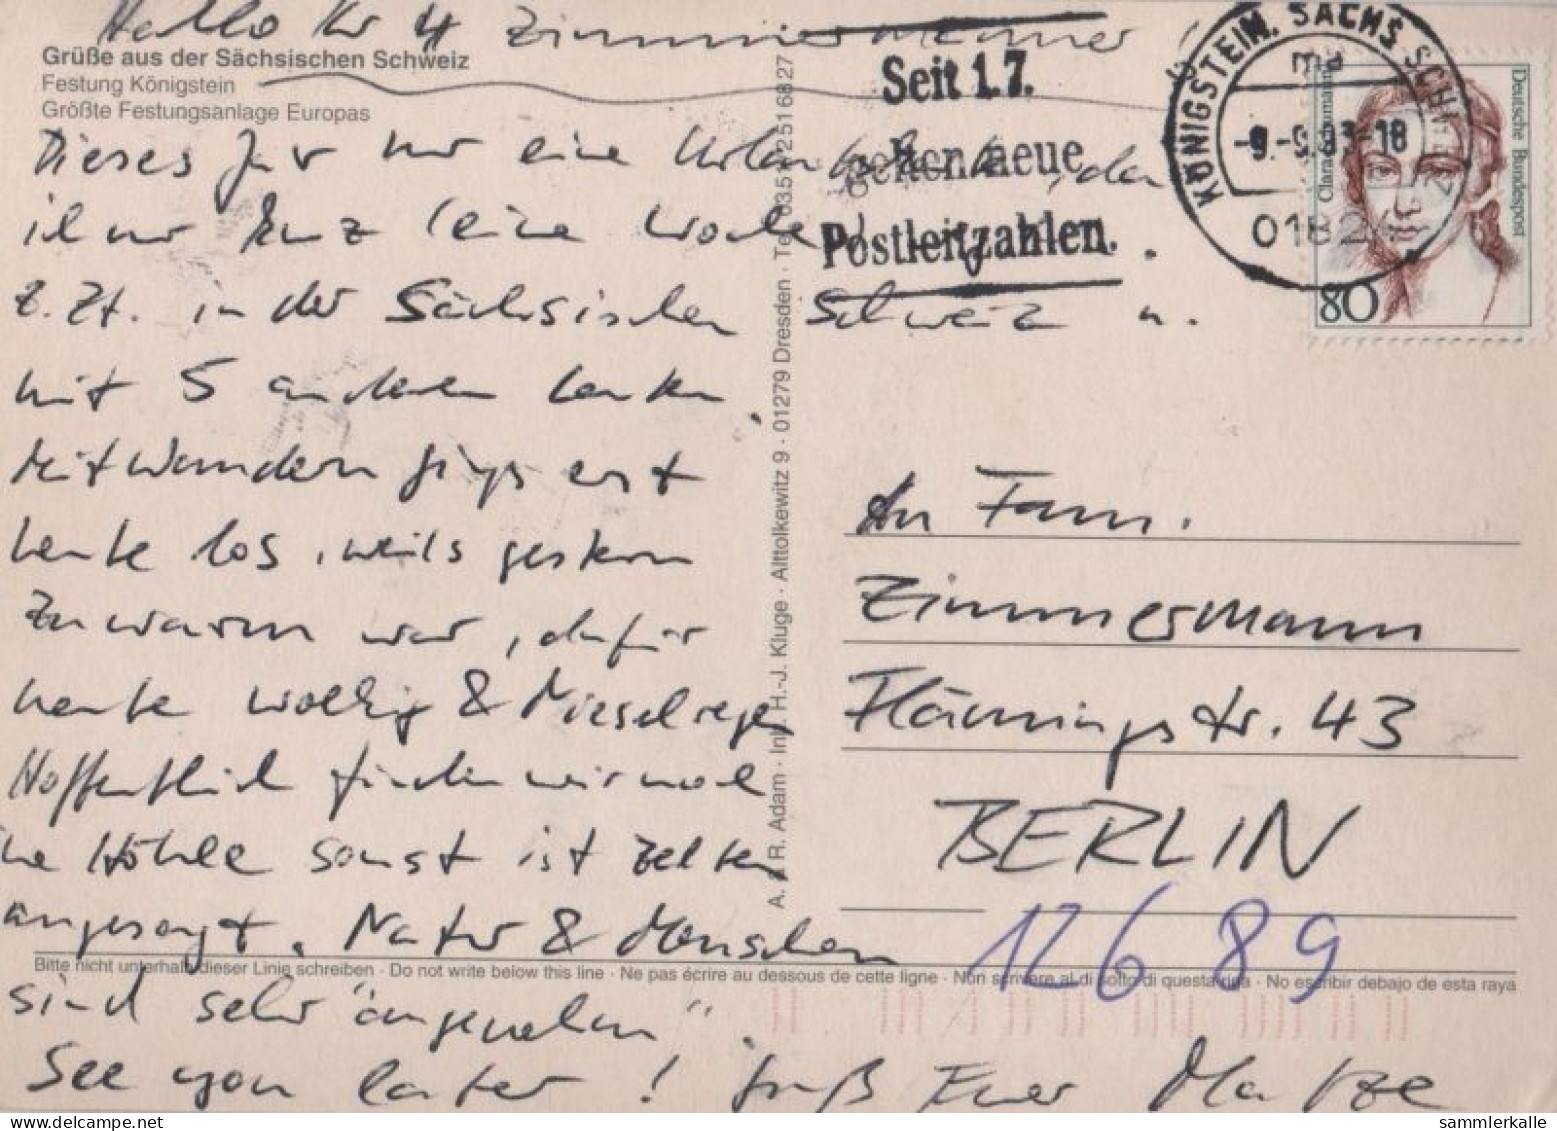 Hallo Ihr 4 Zimmermänner!
Grüße aus der Sächsischen Schweiz
Festung Königstein
Größte Festungsanlage Europas
Dieses Jahr nur eine Urlaubskarte, da
ich nur kurz (eine Woche)
z.Zt. in der Sächsischen Schweiz u.
mit 5 anderen Leuten.
Mit Wandern gings erst
heute los, weils gestern
zu warm war, dafür
heute wolkig & Nieselregen
Hoffentlich finden wir mal
ne Höhle sonst ist zelten
angesagt. Natur & Menschen
sind sehr "angenehm".
See you later! Gruß Euer Matze
Bitte nicht unterhalb dieser Linie schreiben · Do not write below this line · Ne pas écrire au dessous de cette ligne · Non scrivere al di sotto di questa riga · No escribir debajo de esta raya
A. & R. Adam · Inh. H.-J. Kluge · Alttolkewitz 9 · 01279 Dresden · Tel. 0351/2516827
Seit 1.7.
gelten neue
Postleitzahlen.
KÖNIGSTEIN, SÄCHS SCHWEIZ
ma
-9.-9.93-18
01824
Deutsche Bundespost
Clara Schumann
80
An Fam.
Zimmermann
Flämingstr. 43
BERLIN
12689
sammlerkalle